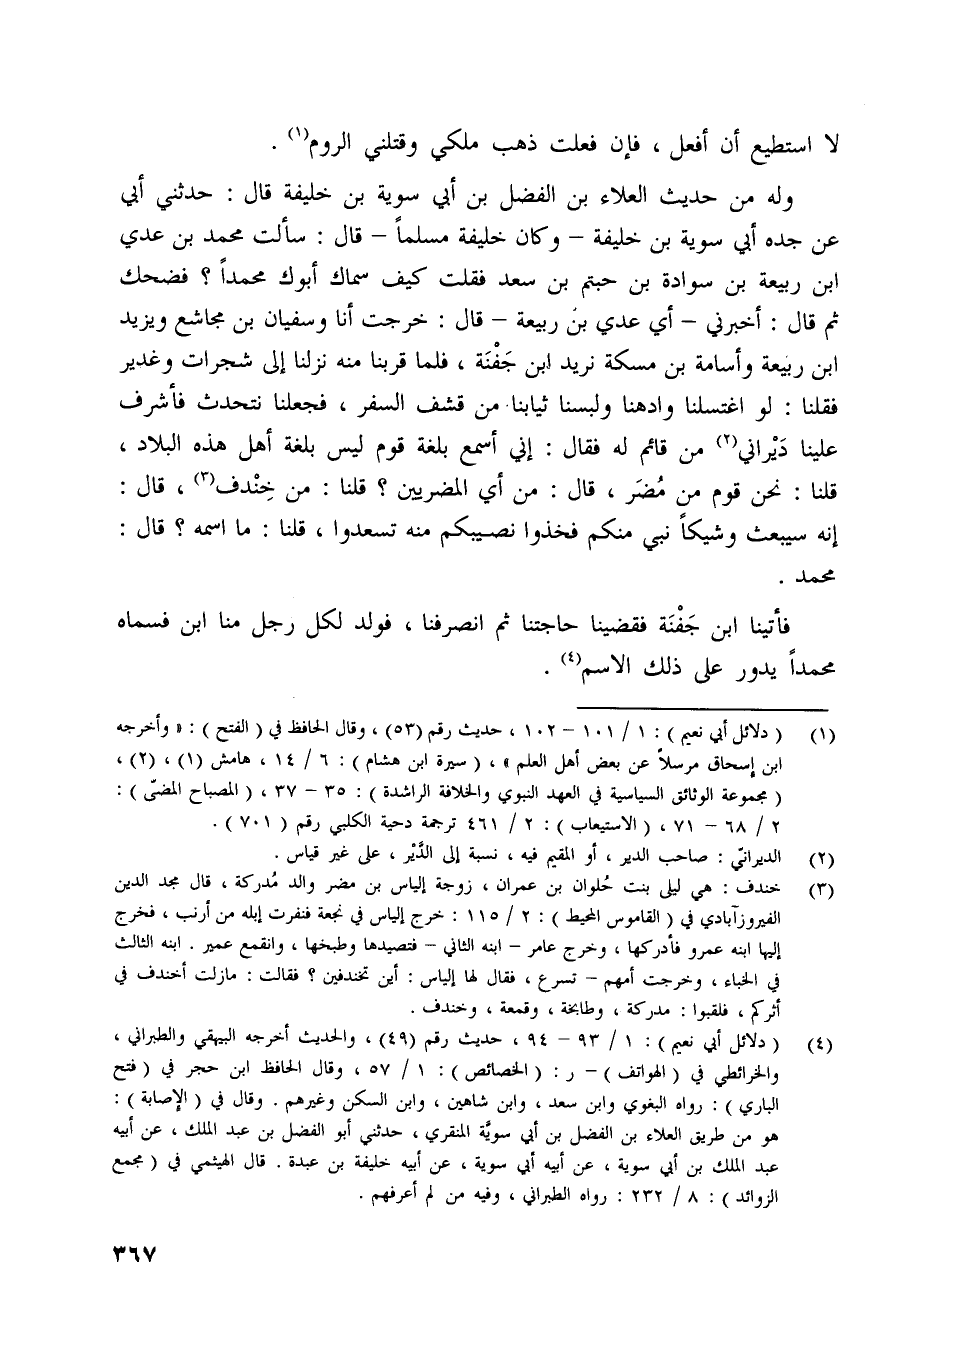 لا استطيع أن أفعل ، فإن فعلت ذهب ملكي وقتلني الروم(١) .
وله من حديث العلاء بن الفضل بن أبي سوية بن خليفة قال : حدثني أبي
عن جده أبي سوية بن خليفة – وكان خليفة مسلماً – قال : سألت محمد بن عدي
ابن ربيعة بن سوادة بن حبتم بن سعد فقلت كيف سماك أبوك محمداً ؟ فضحك
ثم قال : أخبرني – أي عدي بن ربيعة – قال : خرجت أنا وسفيان بن مجاشع ويزيد
ابن ربيعة وأسامة بن مسكة نريد ابن جَفْنَة ، فلما قربنا منه نزلنا إلى شجرات وغدير
فقلنا : لو اغتسلنا وادهنا ولبسنا ثيابنا من قشف السفر ، فجعلنا نتحدث فأشرف
علينا دَيْراني(٢) من قائم له فقال : إني أسمع بلغة قوم ليس بلغة أهل هذه البلاد ،
قلنا : نحن قوم من مُضَر ، قال : من أي المضريين ؟ قلنا : من خِنْدف(٣) ، قال :
إنه سيبعث وشيكاً نبي منكم فخذوا نصيبكم منه تسعدوا ، قلنا : ما اسمه ؟ قال :
محمد .
فأتينا ابن جَفْنَة فقضينا حاجتنا ثم انصرفنا ، فولد لكل رجل منا ابن فسماه
محمداً يدور على ذلك الاسم(٤) .
(١) ( دلائل أبي نعيم ) : ١ / ١٠١ – ١٠٢ ، حديث رقم (٥٣) ، وقال الحافظ في ( الفتح ) : « وأخرجه
ابن إسحاق مرسلاً عن بعض أهل العلم » ، ( سيرة ابن هشام ) : ٦ / ١٤ ، هامش (١) ، (٢) ،
( مجموعة الوثائق السياسية في العهد النبوي والخلافة الراشدة ) : ٣٥ – ٣٧ ، ( المصباح المضيّ ) :
٢ / ٦٨ – ٧١ ، ( الاستيعاب ) : ٢ / ٤٦١ ترجمة دحية الكلبي رقم ( ٧٠١ ) .
(٢) الديرانيّ : صاحب الدير ، أو المقيم فيه ، نسبة إلى الدَّيْر ، على غير قياس .
(٣) خندف : هي ليلى بنت حُلوان بن عمران ، زوجة إلياس بن مضر والد مُدركة ، قال مجد الدين
الفيروزآبادي في ( القاموس المحيط ) : ٢ / ١١٥ : خرج إلياس في نجعة فنفرت إبله من أرنب ، فخرج
إليها ابنه عمرو فأدركها ، وخرج عامر – ابنه الثاني – فتصيدها وطبخها ، وانقمع عمير . ابنه الثالث
في الخباء ، وخرجت أمهم – تسرع ، فقال لها إلياس : أين تخندفين ؟ فقالت : مازلت أخندف في
أثركم ، فلقبوا : مدركة ، وطابخة ، وقمعة ، وخندف .
(٤) ( دلائل أبي نعيم ) : ١ / ٩٣ – ٩٤ ، حديث رقم (٤٩) ، والحديث أخرجه البيهقي والطبراني ،
والخرائطي في ( الهواتف ) – ر : ( الخصائص ) : ١ / ٥٧ ، وقال الحافظ ابن حجر في ( فتح
الباري ) : رواه البغوي وابن سعد ، وابن شاهين ، وابن السكن وغيرهم . وقال في ( الإصابة ) :
هو من طريق العلاء بن الفضل بن أبي سويَّة المنقري ، حدثني أبو الفضل بن عبد الملك ، عن أبيه
عبد الملك بن أبي سوية ، عن أبيه أبي سوية ، عن أبيه خليفة بن عبدة . قال الهيثمي في ( مجمع
الزوائد ) : ٨ / ٢٣٢ : رواه الطبراني ، وفيه من لم أعرفهم .
٣٦٧